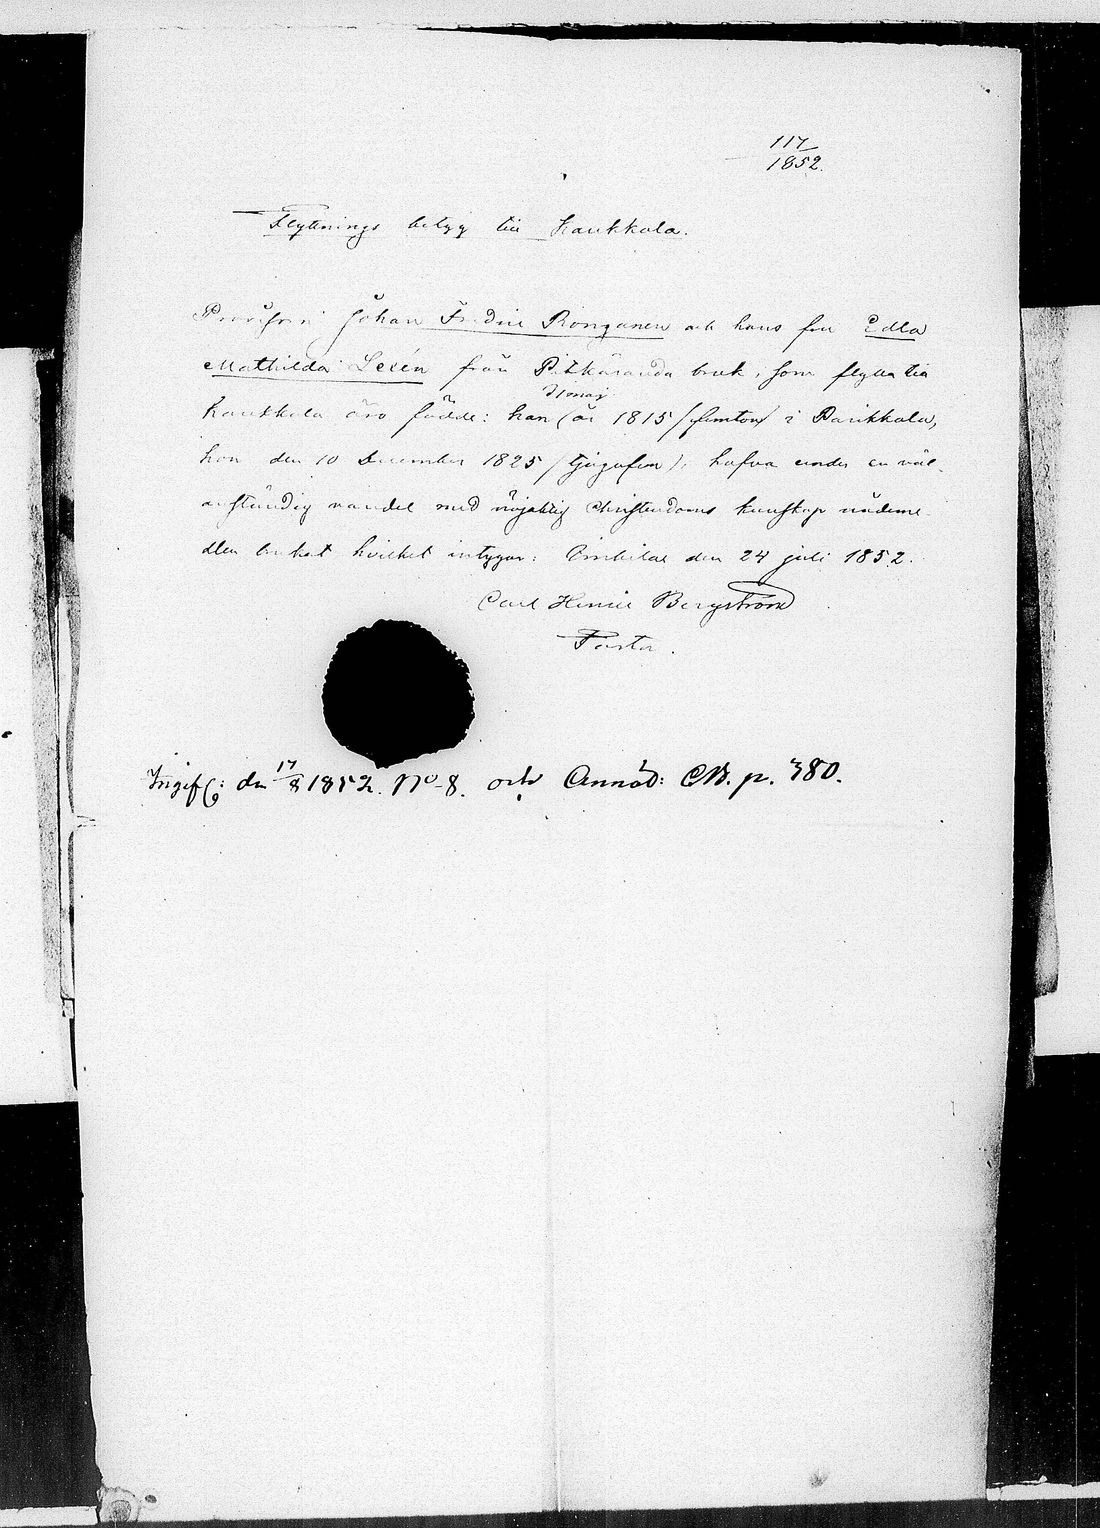 117
1852.
Flyttnings betyg till Kaukkola.
Johan Fredric Ronganen och hans fru Edla
Mathilda Lexén från Pitkäranda bruk, som flytta till
31 maj
Kaukkola äro födde: han (år 1815 /femton/ i Parikkala,
hon den 10 December 1825 /tjugufem/), hafva under en väl-
anständig vandel med nöjaktig Christendoms kunskap nådeme-
dlen brukat hvilket intygar: Imbilax den 24 juli 1852.
Carl Henric Bergström
Pastor.
Ingifv: den 17/8 1852. No 8. och Annot: CB. p. 380.